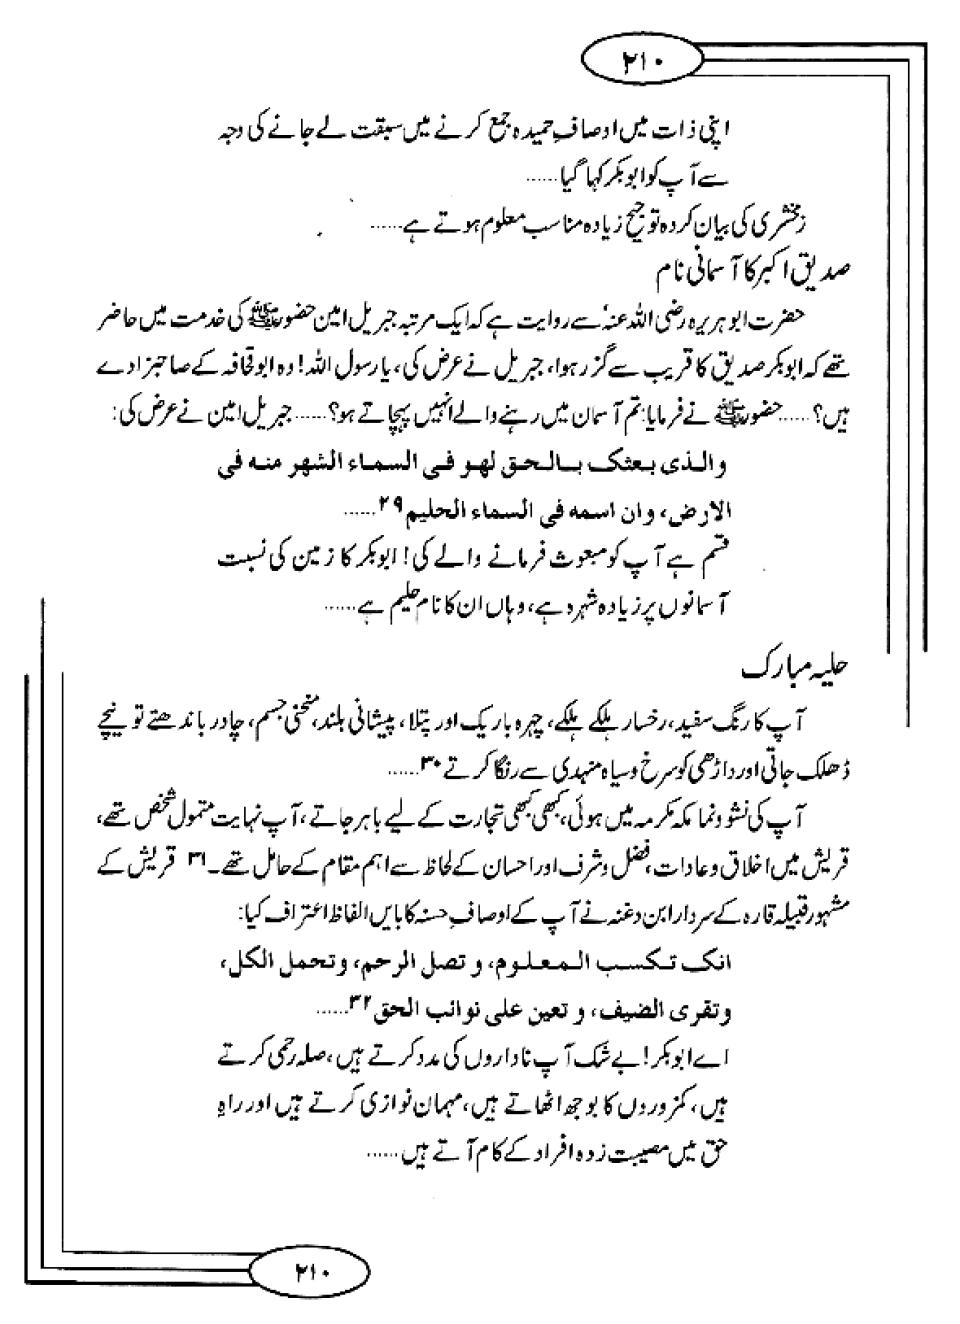 ۲۱۰
اپنی ذات میں اوصافِ حمیدہ جمع کرنے میں سبقت لے جانے کی وجہ
سے آپ کو ابوبکر کہا گیا......
زمخشری کی بیان کردہ توجیح زیادہ مناسب معلوم ہوتے ہے......
صدیق اکبر کا آسمانی نام
حضرت ابو ہریرہ رضی اللہ عنہٗ سے روایت ہے کہ ایک مرتبہ جبریل امین حضور ﷺ کی خدمت میں حاضر
تھے کہ ابوبکر صدیق کا قریب سے گزر ہوا، جبریل نے عرض کی، یا رسول اللہ! وہ ابو قحافہ کے صاحبزادے
ہیں؟...... حضور ﷺ نے فرمایا: تم آسمان میں رہنے والے انہیں پہچاتے ہو؟...... جبریل امین نے عرض کی:
والذی بعثک بالحق لھو فی السماء الشھر منہ فی
الارض، وان اسمہ فی السماء الحلیم۲۹......
قسم ہے آپ کو مبعوث فرمانے والے کی! ابوبکر کا زمین کی نسبت
آسمانوں پر زیادہ شہرہ ہے، وہاں ان کا نام حلیم ہے......
حلیہ مبارک
آپ کا رنگ سفید، رخسار ہلکے ہلکے، چہرہ باریک اور پتلا، پیشانی بلند، منحنی جسم، چادر باندھتے تو نیچے
ڈھلک جاتی اور داڑھی کو سرخ و سیاہ منہدی سے رنگا کرتے ۳۰......
آپ کی نشو و نما مکہ مکرمہ میں ہوئی، کبھی کبھی تجارت کے لیے باہر جاتے، آپ نہایت متمول شخص تھے،
قریش میں اخلاق و عادات، فضل و شرف اور احسان کے لحاظ سے اہم مقام کے حامل تھے۔۳۱ قریش کے
مشہور قبیلہ قارہ کے سردار ابن دغنہ نے آپ کے اوصافِ حسنہ کا بایں الفاظ اعتراف کیا:
انک تکسب المعلوم، و تصل الرحم، وتحمل الکل،
وتقری الضیف، و تعین علی نوائب الحق۳۲......
اے ابوبکر! بے شک آپ ناداروں کی مدد کرتے ہیں، صلہ رحمی کرتے
ہیں، کمزوردوں کا بوجھ اٹھاتے ہیں، مہمان نوازی کرتے ہیں اور راہِ
حق میں مصیبت زدہ افراد کے کام آتے ہیں......
۲۱۰